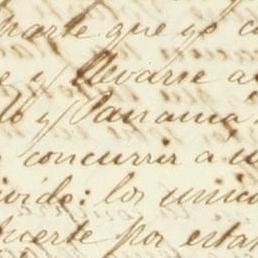 parte que yo c
e y llevarse a
lo y Panamá
concurrir a u
vido: los unico
uerte por esta